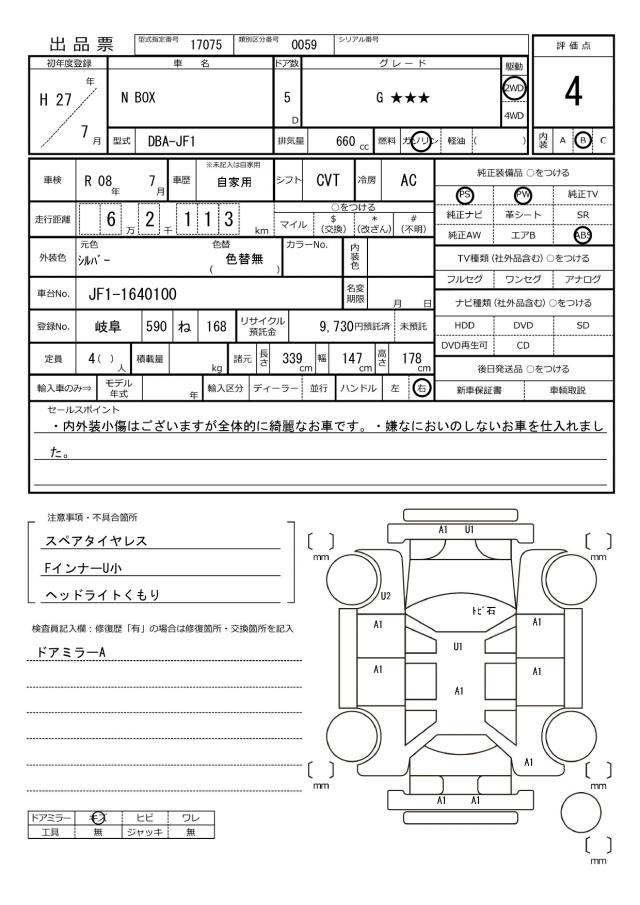 出品票 型式指定番号 17075 類別区分番号 0059 シリアル番号
評価点
4
内装 A B C
初年度登録 車名 ドア数 グレード 駆動
H 27 年 7 月 N BOX 5 D G ★★★ 2WD 4WD
型式 DBA-JF1 排気量 660 cc 燃料 ガソリン 軽油 ( )
車検 R 08 年 7 月 車歴 ※未記入は自家用 自家用 シフト CVT 冷房 AC
走行距離 6 万 2 千 1 1 3 km ○をつける マイル $ (交換) * (改ざん) # (不明)
外装色 元色 ｼﾙﾊﾞｰ 色替 ( 色替無 ) カラーNo. 内装色
車台No. JF1-1640100 名変期限 月 日
登録No. 岐阜 590 ね 168 リサイクル預託金 9,730円預託済 未預託
定員 4( )人 積載量 kg 諸元 長さ 339 cm 幅 147 cm 高さ 178 cm
輸入車のみ⇒ モデル年式 年 輸入区分 ディーラー 並行 ハンドル 左 右
純正装備品 ○をつける
PS PW 純正TV
純正ナビ 革シート SR
純正AW エアB ABS
TV種類(社外品含む)○をつける
フルセグ ワンセグ アナログ
ナビ種類(社外品含む)○をつける
HDD DVD SD
DVD再生可 CD
後日発送品 ○をつける
新車保証書 車輌取説
セールスポイント
・内外装小傷はございますが全体的に綺麗なお車です。・嫌なにおいのしないお車を仕入れまし
た。
注意事項・不具合箇所
スペアタイヤレス
FインナーU小
ヘッドライトくもり
検査員記入欄：修復歴「有」の場合は修復箇所・交換箇所を記入
ドアミラーA
ドアミラー キズ ヒビ ワレ
工具 無 ジャッキ 無
A1 U1
〔 〕 mm 〔 〕 mm
U2
ﾄﾋﾞ石
A1 A1
U1
A1 A1
A1
A1
〔 〕 mm 〔 〕 mm
A1 A1
〔 〕 mm